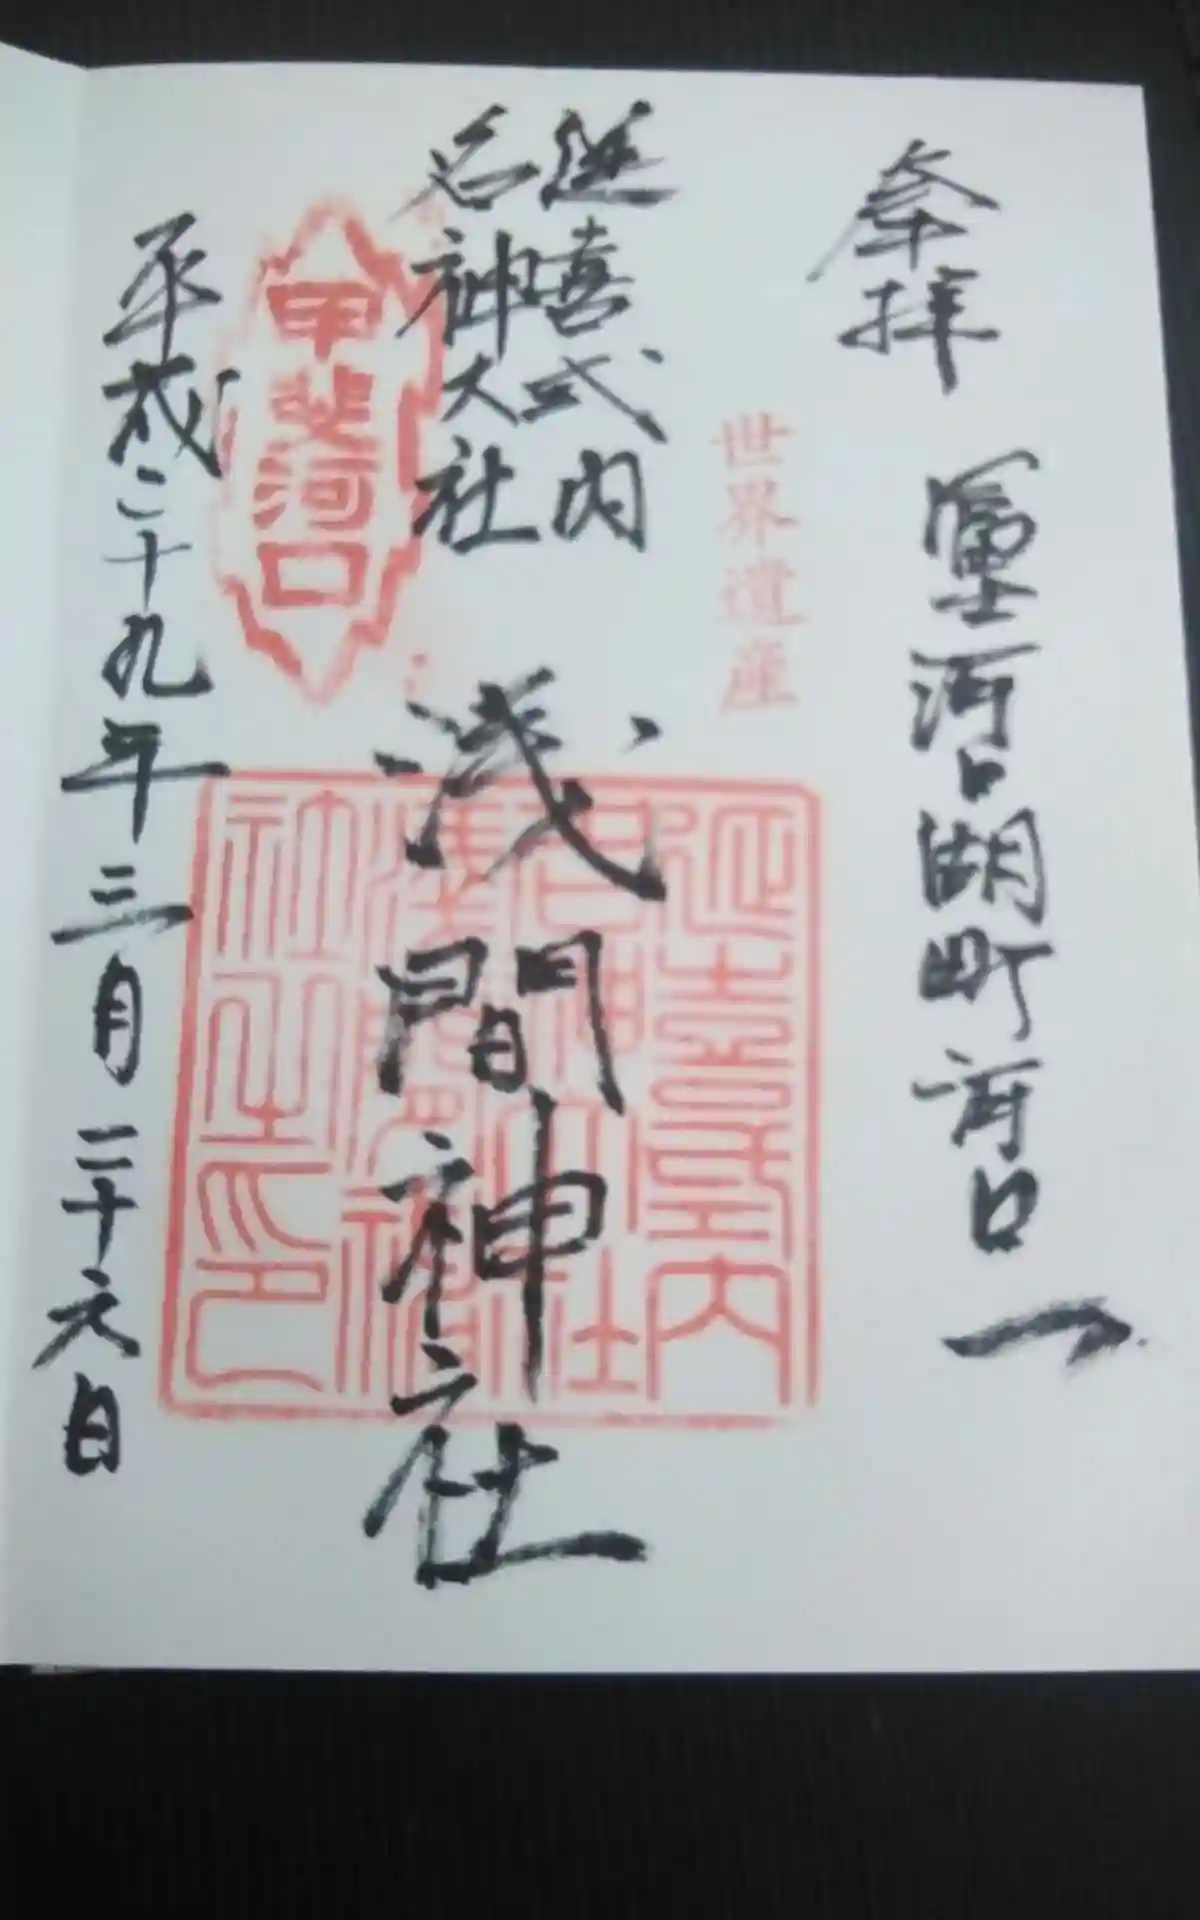 奉拝
富士河口湖町河口一
世界遺産
延喜式内
名神大社
浅間神社
甲斐河口
延喜式内
名神大社
浅間神社
社之印
平成二十九年三月二十六日